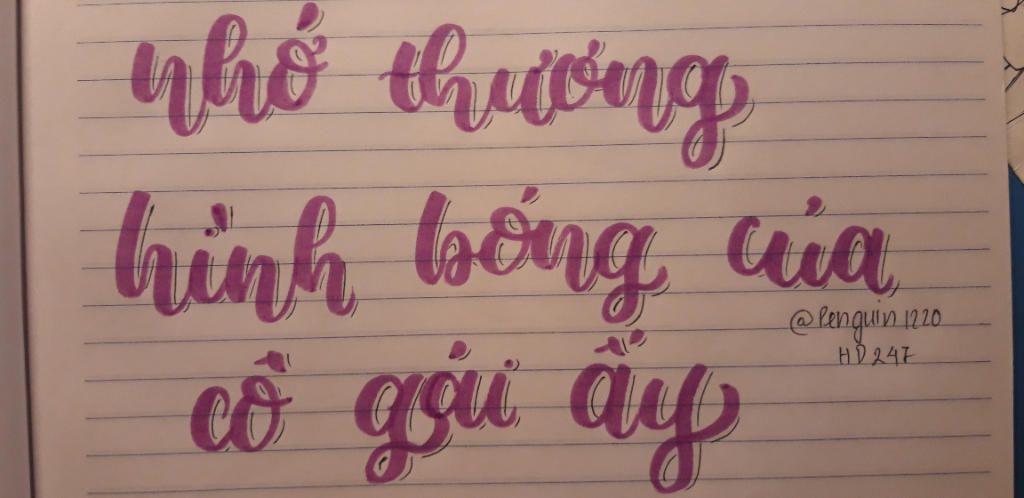 nhớ thương
hình bóng của
@Penguin1220
HD247
cô gái ấy